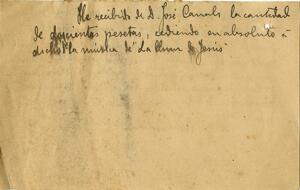 He recibido de D. José Canals la cantidad
de doscientas pesetas, cediendo en absoluto a
dicho la música de "La de Jesús"